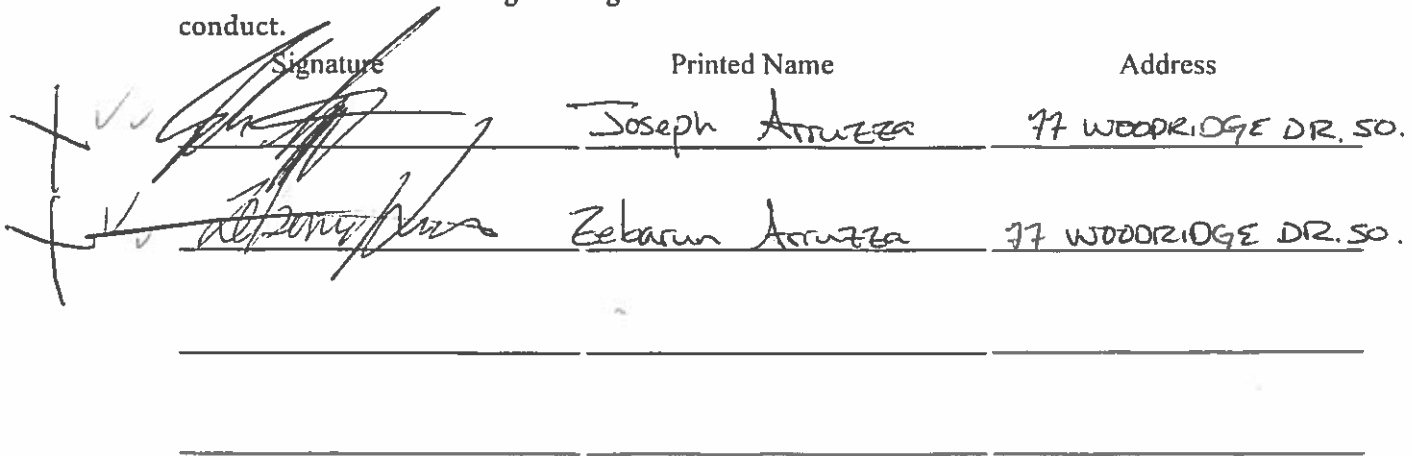 conduct.
Signature Printed Name Address
Joseph Arruzza 77 WOODRIDGE DR. SO.
Zebarun Arruzza 77 WOODRIDGE DR. SO.